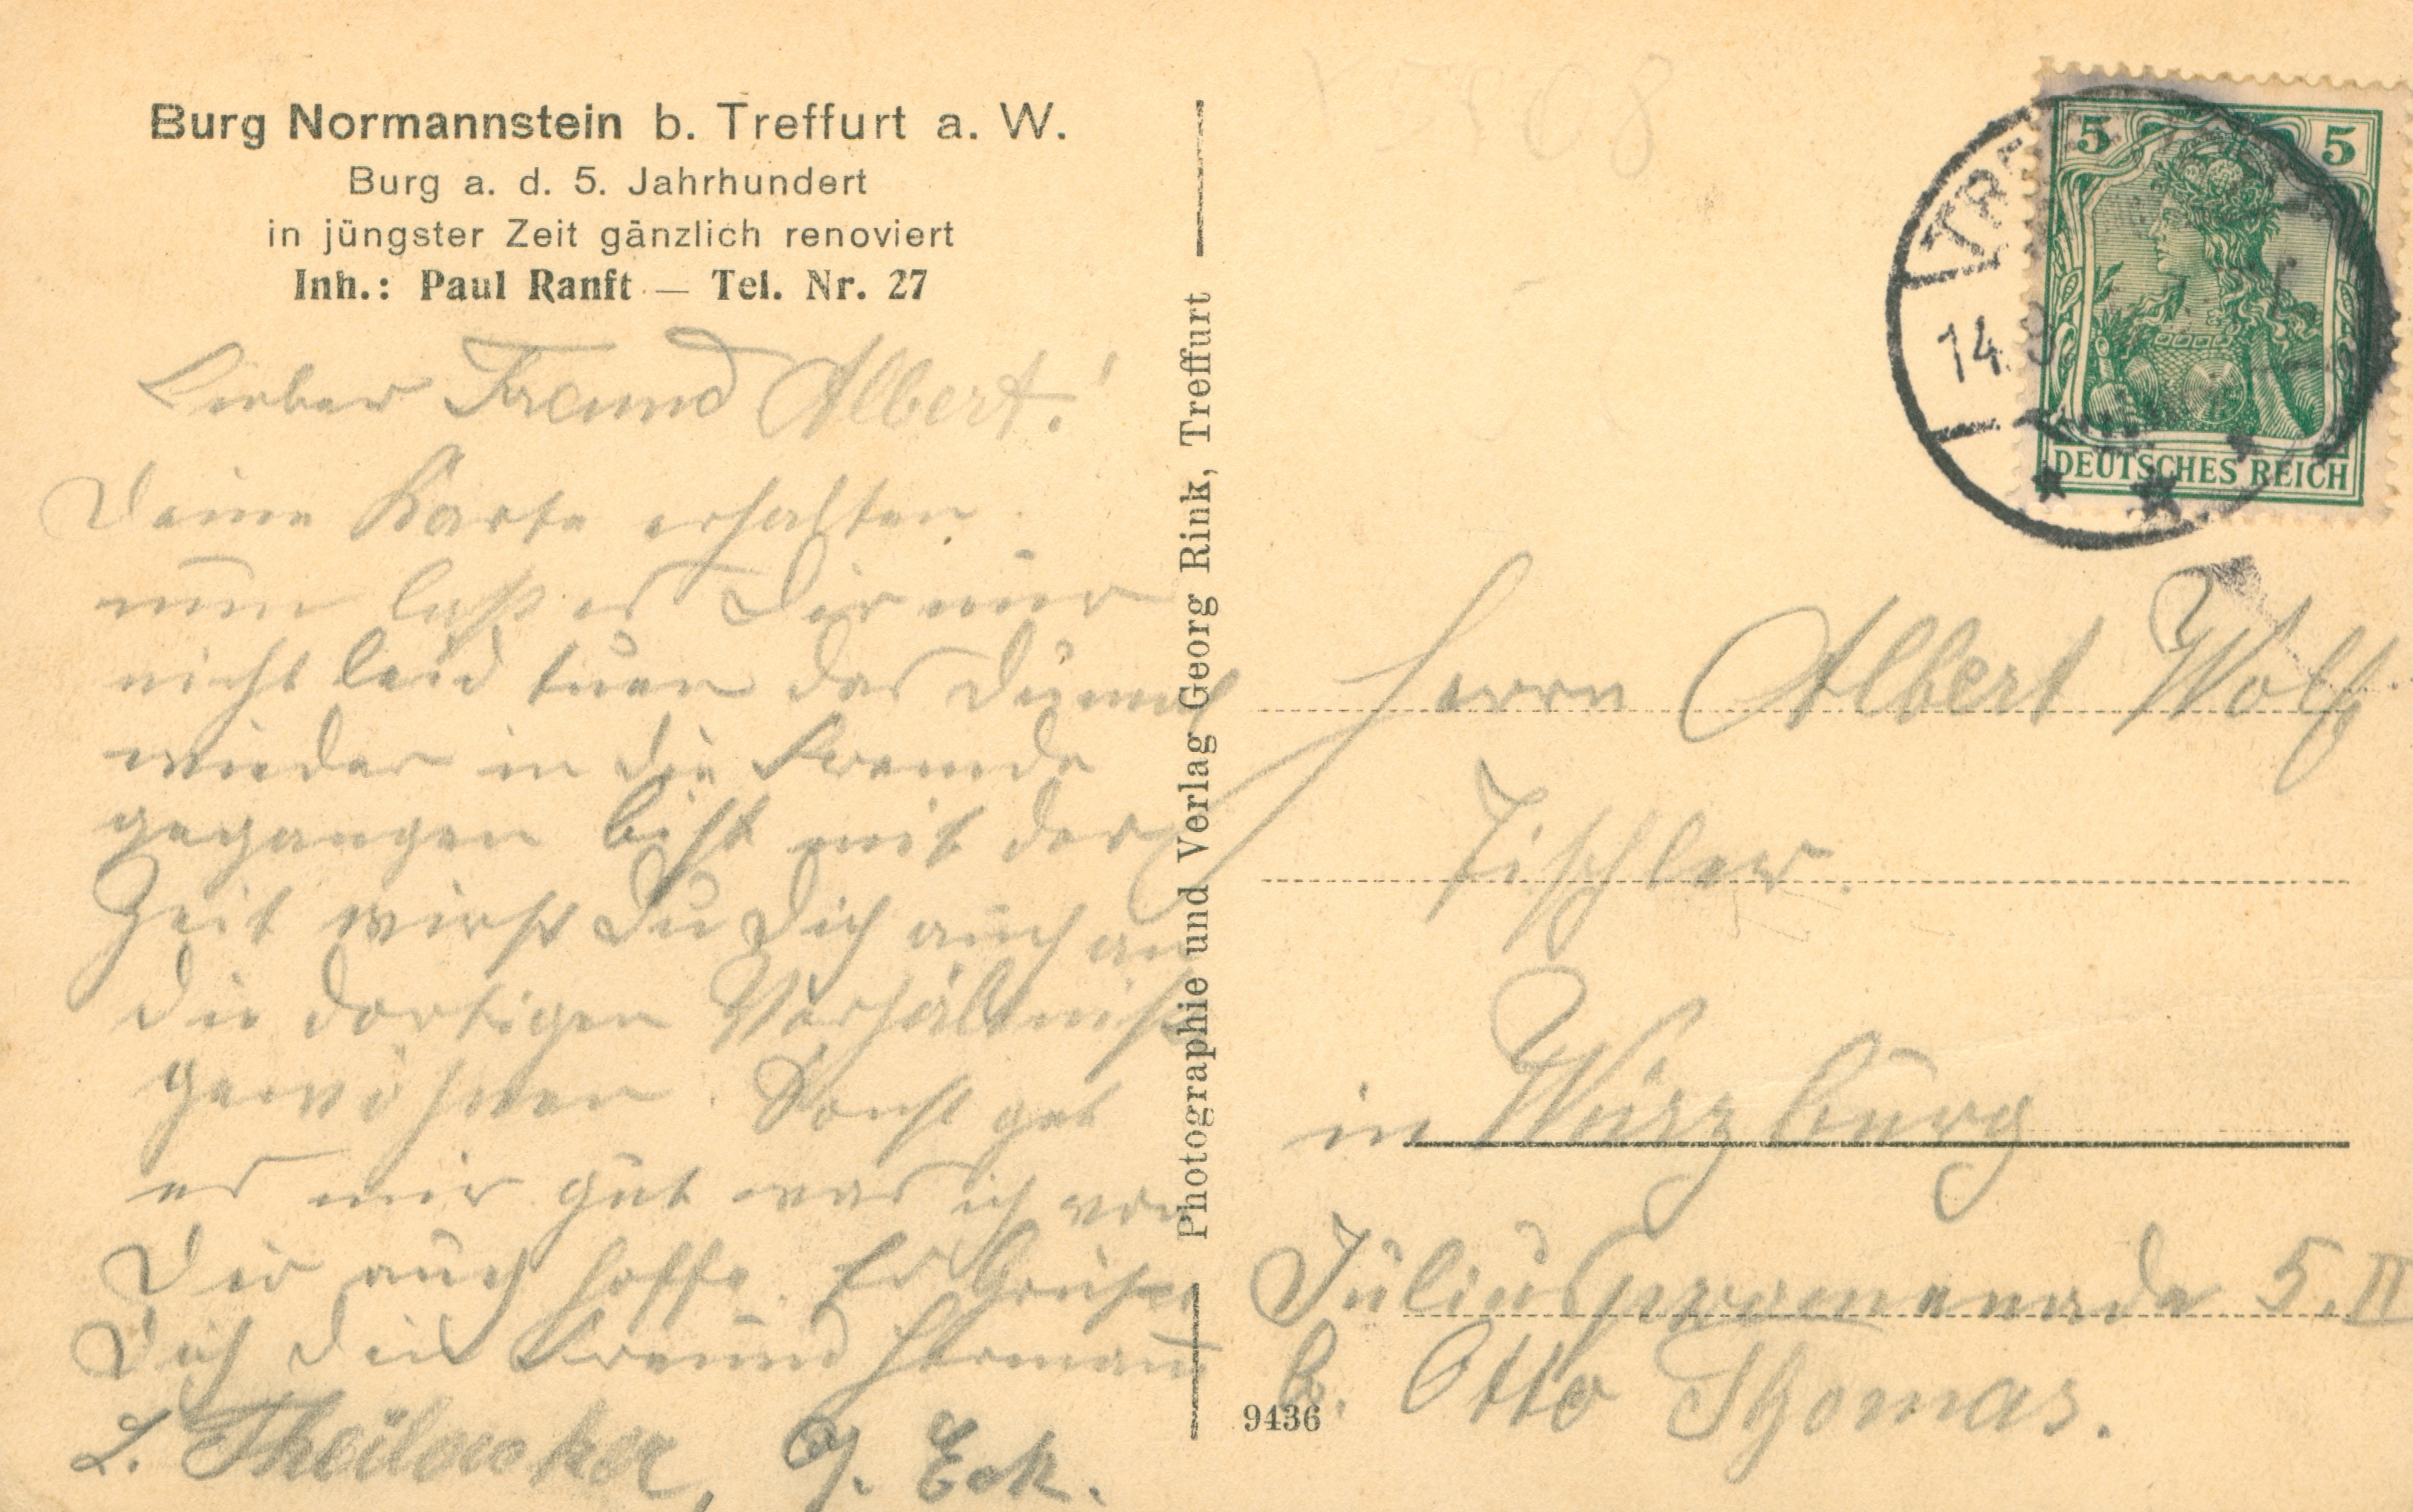 Burg Normannstein b. Treffurt a. W.
Burg a. d. 5. Jahrhundert
in jüngster Zeit gänzlich renoviert
Inh.: Paul Ranft — Tel. Nr. 27
Lieber Freund Albert!
Deine Karte erhalten.
nun laß es Dir nur
nicht leid tuen das Du
wieder in die Fremde
gegangen bist mit der
Zeit wirst Du Dich auch an
die dortigen Verhältniße
gewöhnen. Sonst get
es mir gut was ich von
Dir auch hoffe. Es Grüßt
Dich dein Freund Hermann
L. Theilacker, J. Eck.
Photographie und Verlag Georg Rink, Treffurt
9436
TRE
14. 9
5 5
DEUTSCHES REICH
Herrn Albert Wolf
Tischler.
in Würzburg
Juliuspromenade 5. II
b. Otto Thomas.